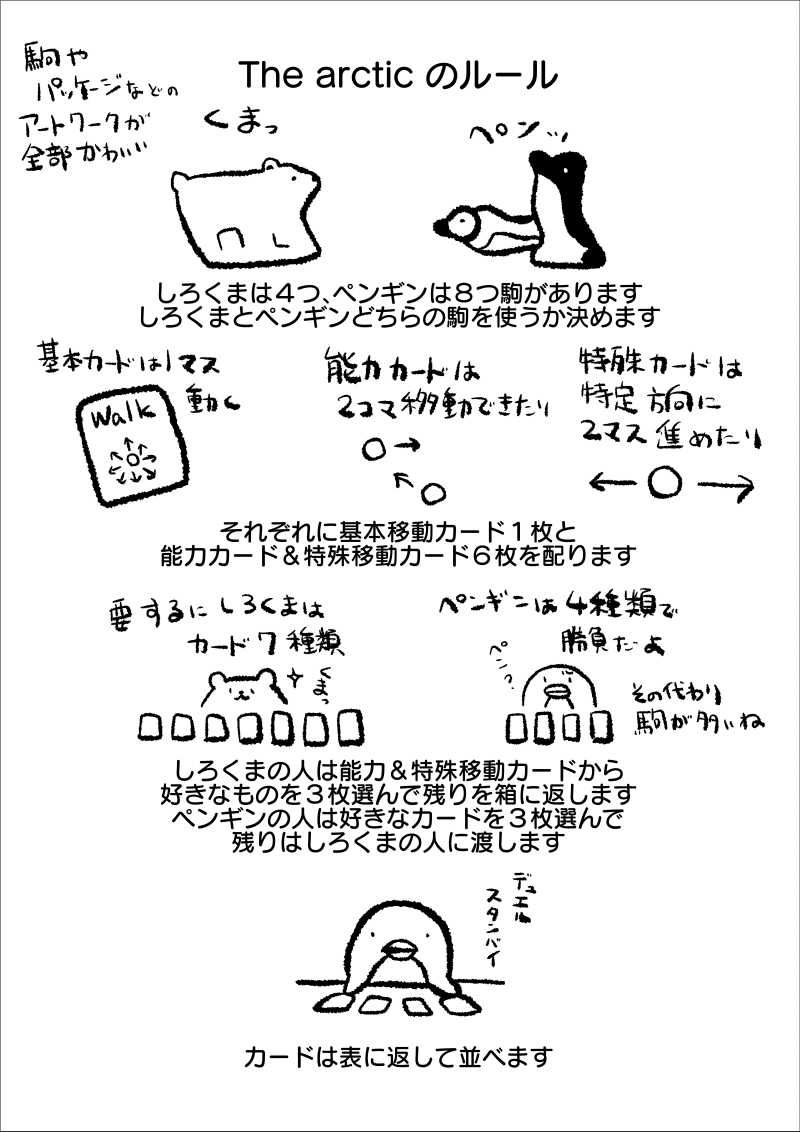 The arctic のルール
駒や
パッケージなどの
アートワークが
全部かわいい
くまっ
ペンッ
しろくまは４つ、ペンギンは８つ駒があります
しろくまとペンギンどちらの駒を使うか決めます
基本カードは1マス
動く
Walk
能力カードは
2コマ移動できたり
特殊カードは
特定方向に
2マス進めたり
それぞれに基本移動カード１枚と
能力カード＆特殊移動カード６枚を配ります
要するにしろくまは
カード7種類
くまっ
ペンギンは4種類で
勝負だよ
ペンッ?
その代わり
駒が多いね
しろくまの人は能力＆特殊移動カードから
好きなものを３枚選んで残りを箱に返します
ペンギンの人は好きなカードを３枚選んで
残りはしろくまの人に渡します
デュエル
スタンバイ
カードは表に返して並べます